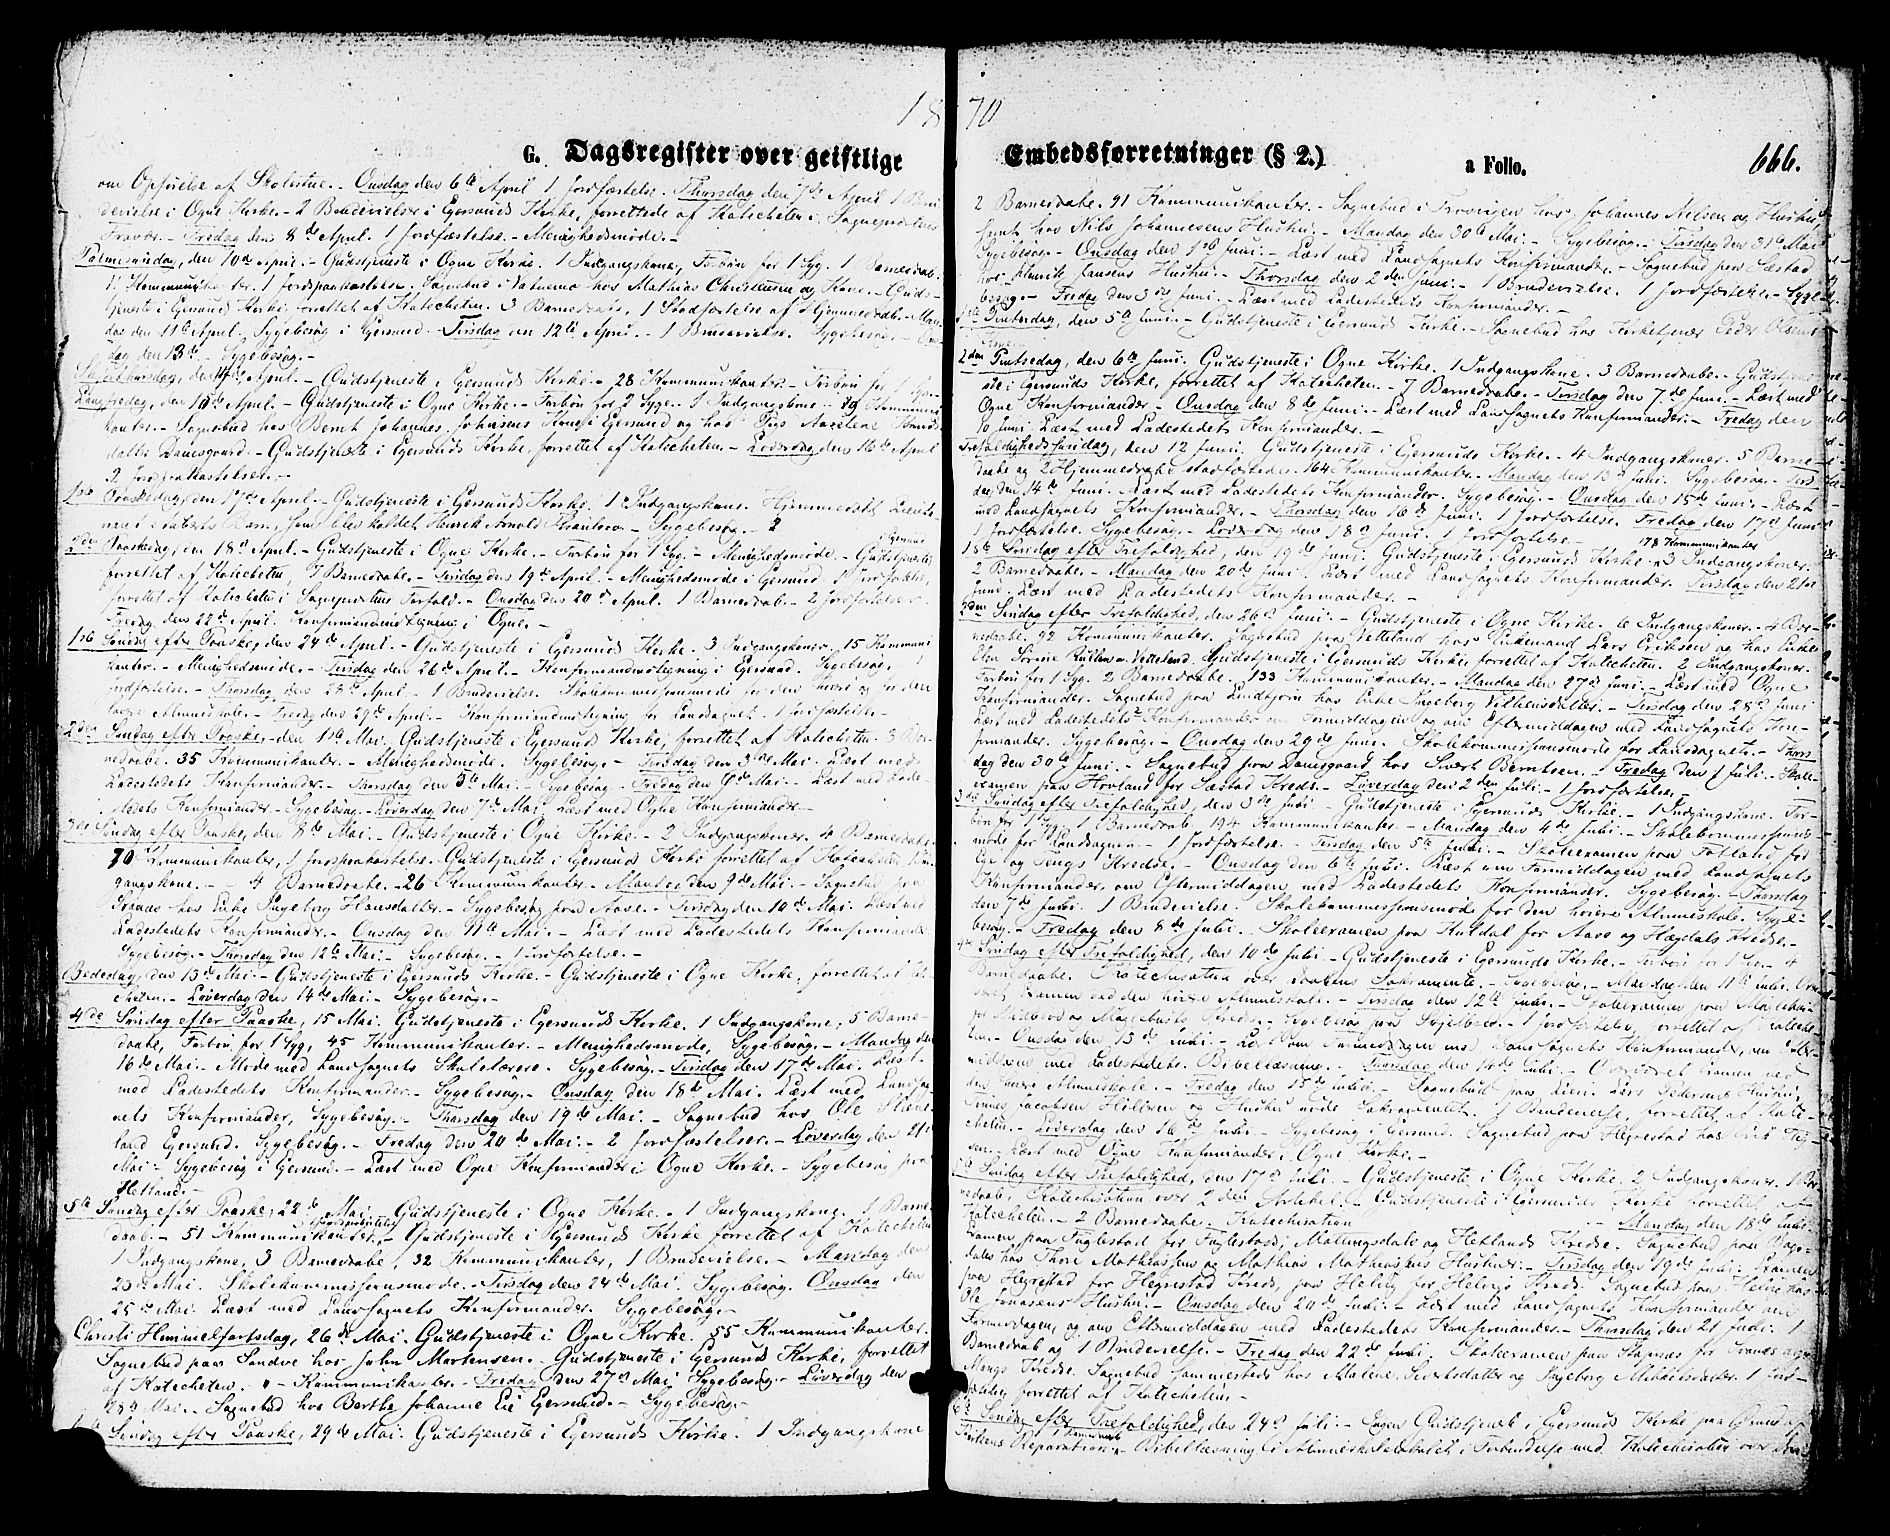 1870
G. Dagsregister over geistlige Embedsforretninger (§ 2.) a Folio. 666.
om Opførelse af Skolestue. - Onsdag den 6te April 1 Jordfæstelse. Thorsdag den 7de April 1 Bru
devielse i Ogne Kirke. - 2 Brudevielser i Egersunds Kirke, forrettede af Katecheten i Sogneprestens
Fravær. - Fredag den 8de April. 1 Jordfæstelse. - Menighedsmøde. -
Palmesøndag, den 10de April. - Gudstjeneste i Ogne Kirke. 1 Indgangskone, Forbøn for 1 Syg. 1 Barnedaab.
Kommunikanter. 1 Jordpaakastelse. Sognebud i hos Mathias Christensen og Kone. - Guds-
tjeneste i Egersunds Kirke, forrettet af Katecheten. 3 Barnedaabe, 1 Stadfæstelse af Hjemmedaab. - Man-
dag den 11te April. Sygebesøg i Egersund. - Tirsdag den 12te April. - 1 Brudevielse. Sygebesøg. - Ons
dag den 13de - Sygebesøg. -
Skjærthorsdag, den 14de April. - Gudstjeneste i Egersunds Kirke. - 28 Kommunikanter. - Forbøn for 1 Syg. -
Langfredag, den 15de April. - Gudstjeneste i Ogne Kirke. - Forbøn for 2 Syge. - 1 Indgangskone. - Kommuni
kanter. - Sognebud hos Bernt Johannes Johnsens Kone i Egersund og hos Pige
datter Damsgaard. - Gudstjeneste i Egersunds Kirke, forrettet af Katecheten. - Løverdag den 16de April
2 Jordpaakastelser. -
1ste Paaskedag, den 17de April. - Gudstjeneste i Egersunds Kirke. 1 Indgangskone. Hjemmedøbt
Barn, som blev kaldet Henrik Arnold - Sygebesøg. -
2den Paaskedag, den 18de April. - Gudstjeneste i Ogne Kirke. - Forbøn for 1 Syg. - Menighedsmøde. - Gudstjeneste i Egersund
forrettet af Katecheten, 7 Barnedaabe. - Tirsdag den 19de April. - Menighedsmøde i Egersund.
forrettet af Katecheten i Sogneprestens Forfald. - Onsdag den 20de April. 1 Barnedaab. - 2 Jordfæstelser.
Fredag den 22de April. Konfirmandmodtagning i Ogne. -
1ste Søndag efter Paaske, den 24de April. - Gudstjeneste i Egersunds Kirke. 3 Indgangskoner. 15 Kommuni
kanter. - Menighedsmøde. - Tirsdag den 26de April. - Konfirmandmodtagning i Egersund. Sygebesøg, 1
Jordfæstelse. - Thorsdag den 28de April. - 1 Brudevielse. Skolekommissionsmøde for den høiere og for den
lavere Almueskole. - Fredag den 29de April. - Konfirmandmodtagning for Landsognet. 1 Jordfæstelse. -
2den Søndag efter Paaske, - den 1ste Mai. Gudstjeneste i Egersunds Kirke, forrettet af Katecheten. 3 Bar-
nedaabe. 35 Kommunikanter. - Menighedsmøde. Sygebesøg. - Tirsdag den 3die Mai. Læst med
Ladestedets Konfirmander. - Thorsdag den 5te Mai. - Sygebesøg. - Fredag den 6te Mai. - Læst med Lade-
stedets Konfirmander. - Sygebesøg. - Løverdag den 7de Mai. Læst med Ogne Konfirmander. -
3die Søndag efter Paaske, den 8de Mai. - Gudstjeneste i Ogne Kirke. - 2 Indgangskoner. 4 Barnedaabe.
70 Kommunikanter, 1 Jordpaakastelse. - Gudstjeneste i Egersunds Kirke forrettet af Katecheten 1 Ind
gangskone. - - 4 Barnedaabe. - 26 Kommunikanter. - Mandag den 9de Mai. - Sognebud paa
hos Enke Ingeborg Hansdatter. - Sygebesøg paa Aase. - Tirsdag den 10de Mai. Læst med
Ladestedets Konfirmander. - Onsdag den 11te Mai. - Læst med Ladestedets Konfirmander.
Sygebesøg. - Thorsdag den 12te Mai. - Sygebesøg. - 1 Jordfæstelse. -
Bededag, den 13de Mai. - Gudstjeneste i Egersunds Kirke. - Gudstjeneste i Ogne Kirke, forrettet af Kate-
cheten. - Løverdag den 14de Mai. - Sygebesøg. -
4de Søndag efter Paaske, 15 Mai. Gudstjeneste i Egersunds Kirke. 1 Indgangskone, 5 Barne-
daabe, Forbøn for 1 Syg, 45 Kommunikanter. - Menighedsmøde, Sygebesøg. - Mandag den
16de Mai. Møde med Landsognets Skolelærere. Sygebesøg. - Tirsdag den 17de Mai. Læst
med Ladestedets Konfirmander. - Sygebesøg. - Onsdag den 18de Mai. Læst med Landsog
nets Konfirmander, Sygebesøg. - Thorsdag den 19de Mai. - Sognebud hos Ole
land Egersund. Sygebesøg. - Fredag den 20de Mai. - 2 Jordfæstelser. - Løverdag den 21de
Mai. - Sygebesøg i Egersund. - Læst med Ogne Konfirmander i Ogne Kirke. - Sygebesøg paa
Hetland. -
5te Søndag efter Paaske, 22de Mai. Gudstjeneste i Ogne Kirke. - 1 Indgangskone. 1 Barne
daab. - 51 Kommunikanter. - Gudstjeneste i Egersunds Kirke forrettet af Katecheten
1 Indgangskone, 3 Barnedaabe, 32 Kommunikanter, 1 Brudevielse. - Mandag den
23de Mai. Skolekommissionsmøde. - Tirsdag den 24de Mai. Sygebesøg. Onsdag den
25de Mai. Læst med Landsognets Konfirmander. Sygebesøg. -
Christi Himmelfartsdag, 26de Mai. Gudstjeneste i Ogne Kirke. 55 Kommunikanter.
Sognebud paa Sandve hos John Mortensen. - Gudstjeneste i Egersunds Kirke, forrettet
af Katecheten. - Kommunikanter. - Fredag den 27de Mai Sygebesøg. - Løverdag den
28de Mai. - Sognebud hos Berthe Johanne Eie Egersund. - Sygebesøg. -
Søndag efter Paaske, 29de Mai. Gudstjeneste i Egersunds Kirke. 1 Indgangskone
2 Barnedaabe. 91 Kommunikanter. - Sognebud i hos Johannes Nilsen og Hustru,
samt hos Nils Johannesens Hustru. - Mandag den 30te Mai. - Sygebesøg. - Tirsdag den 31te Mai
Sygebesøg. - Onsdag den 1ste Juni. - Læst med Landsognets Konfirmander. - Sognebud paa Sæstad
hos Henrik Hansens Hustru. - Thorsdag den 2den Juni. - 1 Brudevielse. 1 Jordfæstelse. - Syge
besøg. - Fredag den 3die Juni. - Læst med Ladestedets Konfirmander. -
1ste Pintsedag, den 5te Juni. - Gudstjeneste i Egersunds Kirke. - Sognebud hos Kirketjener Peder Olsens
Kone. -
2den Pintsedag, den 6te Juni. Gudstjeneste i Ogne Kirke. 1 Indgangskone. 3 Barnedaabe. - Gudstjene
ste i Egersunds Kirke, forrettet af Katecheten. - 7 Barnedaabe. - Tirsdag den 7de Juni. Læst med
Ogne Konfirmander. - Onsdag den 8de Juni. - Læst med Landsognets Konfirmander. - Fredag den
10 Juni. Læst med Ladestedets Konfirmander. -
Trefoldighedssøndag, den 12 Juni. Gudstjeneste i Egersunds Kirke. - 4 Indgangskoner. 5 Barne
daabe og 2 Hjemmedaabe stadfæstede. 164 Kommunikanter. - Mandag den 13de Juni. Sygebesøg. - Tirs
dag den 14de Juni. Læst med Ladestedets Konfirmander. Sygebesøg. - Onsdag den 15de Juni. - Læst
med Landsognets Konfirmander. - Thorsdag den 16de Juni. 1 Jordfæstelse. Fredag den 17de Juni
1 Jordfæstelse. Sygebesøg. - Løverdag den 18de Juni. 1 Jordfæstelse. -
178 Kommunikanter
1ste Søndag efter Trefoldighed, den 19de Juni. Gudstjeneste i Egersunds Kirke. - 3 Indgangskoner.
2 Barnedaabe. - Mandag den 20de Juni. Læst med Landsognets Konfirmander. Tirsdag den 21de
Juni. Læst med Ladestedets Konfirmander. -
2den Søndag efter Trefoldighed, den 26de Juni. - Gudstjeneste i Ogne Kirke. 6 Indgangskoner. - 4 Bar
nedaabe. 92 Kommunikanter. Sognebud paa Vetteland hos Enkemand Lars Eriksen og hos Enke
Elen Sorine Vetteland. Gudstjeneste i Egersunds Kirke forrettet af Katecheten. 2 Indgangskoner.
Forbøn for 1 Syg. 2 Barnedaabe. 133 Kommunikanter. - Mandag den 27de Juni. - Læst med Ogne
Konfirmander. Sognebud paa Lindbjørn hos Enke Ingeborg Villumsdatter. - Tirsdag den 28de Juni
Læst med Ladestedets Konfirmander om Formiddagen og om Eftermiddagen med Landsognets Kon-
firmander. Sygebesøg. - Onsdag den 29de Juni. Skolekommissionsmøde for Landsognet. - Thors
dag den 30te Juni. - Sognebud paa Damsgaard hos Sivert Berntsen. - Fredag den 1 Juli. - Skole-
examen paa Hovland for Sæstad Kreds. - Løverdag den 2den Juli. - 1 Jordfæstelse. -
3die Søndag efter Trefoldighed, den 3die Juli. - Gudstjeneste i Egersunds Kirke. - 1 Indgangskone. For-
bøn for 1 Syg. 1 Barnedaab. 194 Kommunikanter. - Mandag den 4de Juli. - Skolekommissions
møde for Landsognet. - 1 Jordfæstelse. - Tirsdag den 5te Juli. - Skoleexamen paa Fotland for
Ege og Tengs Kredse. - Onsdag den 6te Juli. Læst om Formiddagen med Landsognets
Konfirmander, om Eftermiddagen med Ladestedets Konfirmander. Sygebesøg. - Thorsdag
den 7de Juli. 1 Brudevielse. Skolekommissionsmøde for den høiere Almueskole. Syge-
besøg. - Fredag den 8de Juli. - Skoleexamen paa for Aase og Hægdals Kredse. -
4de Søndag efter Trefoldighed, den 10de Juli. - Gudstjeneste i Egersunds Kirke. - Forbøn for 1 Syg. - 4
Barnedaabe. Katechisation over Daabens Sakramente. - Sygebesøg. - Mandag den 11te Juli.
Examen ved den høiere Almueskole. - Tirsdag den 12te Juli. - Skoleexamen paa
Kredse. - Sygebesøg paa - 1 Jordfæstelse, forrettet af Kateche
ten. - Onsdag den 13de Juli. - Læst om Formiddagen med Landsognets Konfirmander, om Efter-
middagen med Ladestedets. Bibellæsning. - Thorsdag den 14de Juli. - Examen ved
den lavere Almueskole. - Fredag den 15de Juli. - Sognebud paa Lars Pedersens Hustru,
Jacobsen og Hustru Sakramentet. 1 Brudevielse, forrettet af Kate-
cheten. - Løverdag den 16de Juli. - Sygebesøg i Egersund. Sognebud paa Hegrestad hos
Læst med Ogne Konfirmander i Ogne Kirke. -
5te Søndag efter Trefoldighed, den 17de Juli. - Gudstjeneste i Ogne Kirke. 2 Indgangskoner. 1 Bar
nedaab, Katechisation over 2den Artikel. - Gudstjeneste i Egersunds Kirke forrettet af
Katecheten. - 2 Barnedaabe. Katechisation - Mandag den 18de Juli.
Examen paa Fuglestad for Fuglestads, Mattingsdals og Hetlands Kredse. Sognebud paa
dal hos Thore Mathiassen og Mathias Mathiassens Hustruer. - Tirsdag den 19de Juli. Examen
paa Hegrestad for Hegrestad Kreds, paa Helvig for Helvigs Kreds. Sognebud paa hos
Ole Jonassens Hustru. - Onsdag den 20de Juli. - Læst med Landsognets Konfirmander ved
Formiddagen, og om Eftermiddagen med Ladestedets Konfirmander. - Thorsdag den 21 Juli. 1
Barnedaab og 1 Brudevielse. - Fredag den 22de Juli. Skoleexamen paa for og
Kredse. Sognebud sammesteds hos Malene Sivertsdatter og Ingeborg Mikkelsdatter. 1 Jord-
fæstelse forrettet af Katecheten. -
6te Søndag efter Trefoldighed, den 24de Juli. - Ingen Gudstjeneste i Egersunds Kirke paa Grund af
Kirkens Reparation. - Bibellæsning i Almueskolelokalet i Forbindelse med Katechisation over